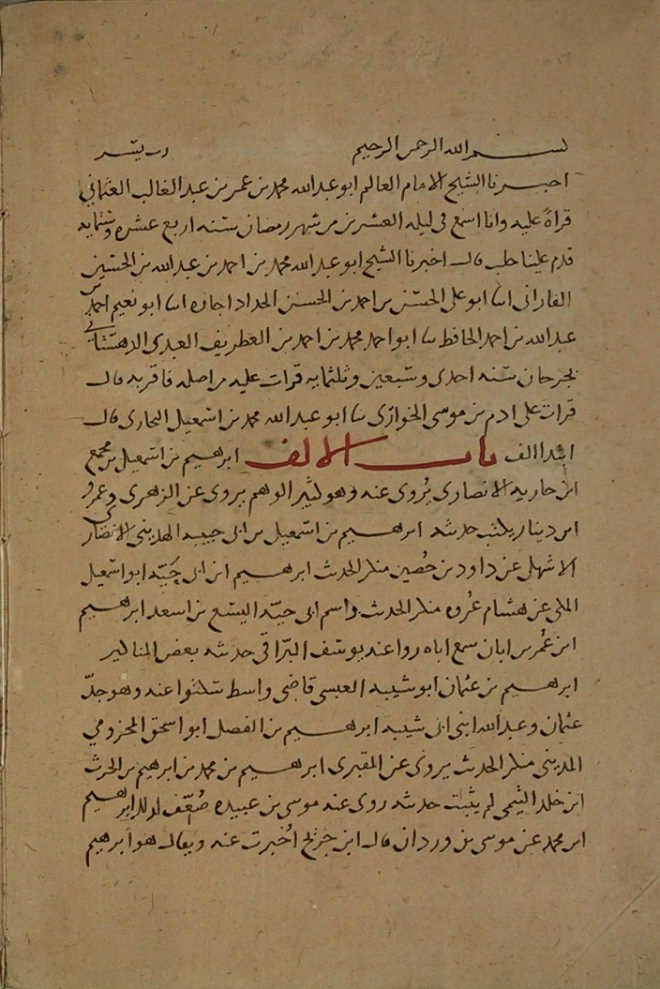 بسم الله الرحمن الرحيم رب يسر
اخبرنا الشيخ الامام العالم ابو عبدالله محمد بن عمر بن عبد الغالب العثماني
قراة عليه وانا اسمع في ليله العشرين من شهر رمضان سنه اربع عشره وستمايه
قدم علينا حلب قال اخبرنا الشيخ ابو عبدالله محمد بن احمد بن عبدالله بن الحسين
الفاراني انبا ابو علي الحسن بن احمد بن الحسن الحداد اجازه انبا ابو نعيم احمد بن
عبدالله بن احمد الحافظ ثنا ابو احمد محمد بن احمد بن الغطريف العبدي الدهستاني
بجرجان سنه احدى وسبعين وثلثمايه قرات عليه من اصله فاقر به قال
قرات على ادم بن موسى الخواري ثنا ابو عبدالله محمد بن اسمعيل البخاري قال
ابتدا الف باب الالف ابرهيم بن اسمعيل بن مجمع
ابن جاريه الانصاري يروى عنه وهو كثير الوهم يروى عن الزهري وعمرو
ابن دينار يكتب حديثه ابرهيم بن اسمعيل بن ابي حبيبه المديني الانصاري
الاشهلي عن داود بن حصين منكر الحديث ابرهيم ابن ابي حيه ابو اسمعيل
المكي عن هشام عروه منكر الحديث واسم ابي حيه اليسع بن اسعد ابرهيم
ابن عمر بن ابان سمع اباه روا عنه يوسف البرا في حديثه بعض المناكير
ابرهيم بن عثمان ابو شيبه العبسي قاضي واسط سكتوا عنه وهو جد
عثمان وعبدالله ابني ابي شيبه ابرهيم بن الفضل ابو اسحق المخزومي
المديني منكر الحديث يروى عن المقبري ابرهيم بن محمد بن ابرهيم بن الحرث
ابن خلد التيمي لم يثبت حديثه روى عنه موسى بن عبيده ضعف لذلك ابرهيم
ابن محمد عن موسى بن وردان قال ابن جريج اخبرت عنه ويقال هو ابرهيم